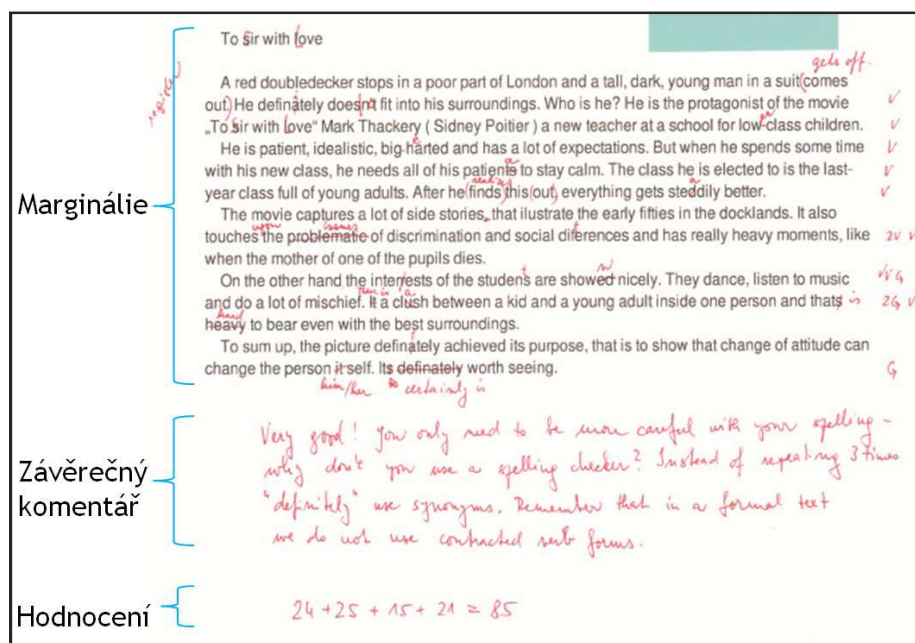 To sir with love
gets off.
A red doubledecker stops in a poor part of London and a tall, dark, young man in a suit comes
out. He definately doesnt fit into his surroundings. Who is he? He is the protagonist of the movie
„To sir with love“ Mark Thackery ( Sidney Poitier ) a new teacher at a school for low-class children.
He is patient, idealistic, big-harted and has a lot of expectations. But when he spends some time
with his new class, he needs all of his patients to stay calm. The class he is elected to is the last-
realizes
year class full of young adults. After he finds this out, everything gets steddily better.
The movie captures a lot of side stories, that ilustrate the early fifties in the docklands. It also
upon issues
touches the problematic of discrimination and social diferences and has really heavy moments, like
when the mother of one of the pupils dies.
On the other hand the interrests of the studens are showed nicely. They dance, listen to music
There is a
and do a lot of mischief. It a clush between a kid and a young adult inside one person and thats is
hard
heavy to bear even with the best surroundings.
To sum up, the picture definately achieved its purpose, that is to show that change of attitude can
change the person it self. Its definately worth seeing.
him/her certainly is
Marginálie
Very good! You only need to be more careful with your spelling -
why don't you use a spelling checker? Instead of repeating 3 times
"definitely" use synonyms. Remember that in a formal text
we do not use contracted verb forms.
Závěrečný
komentář
24 + 25 + 15 + 21 = 85
Hodnocení